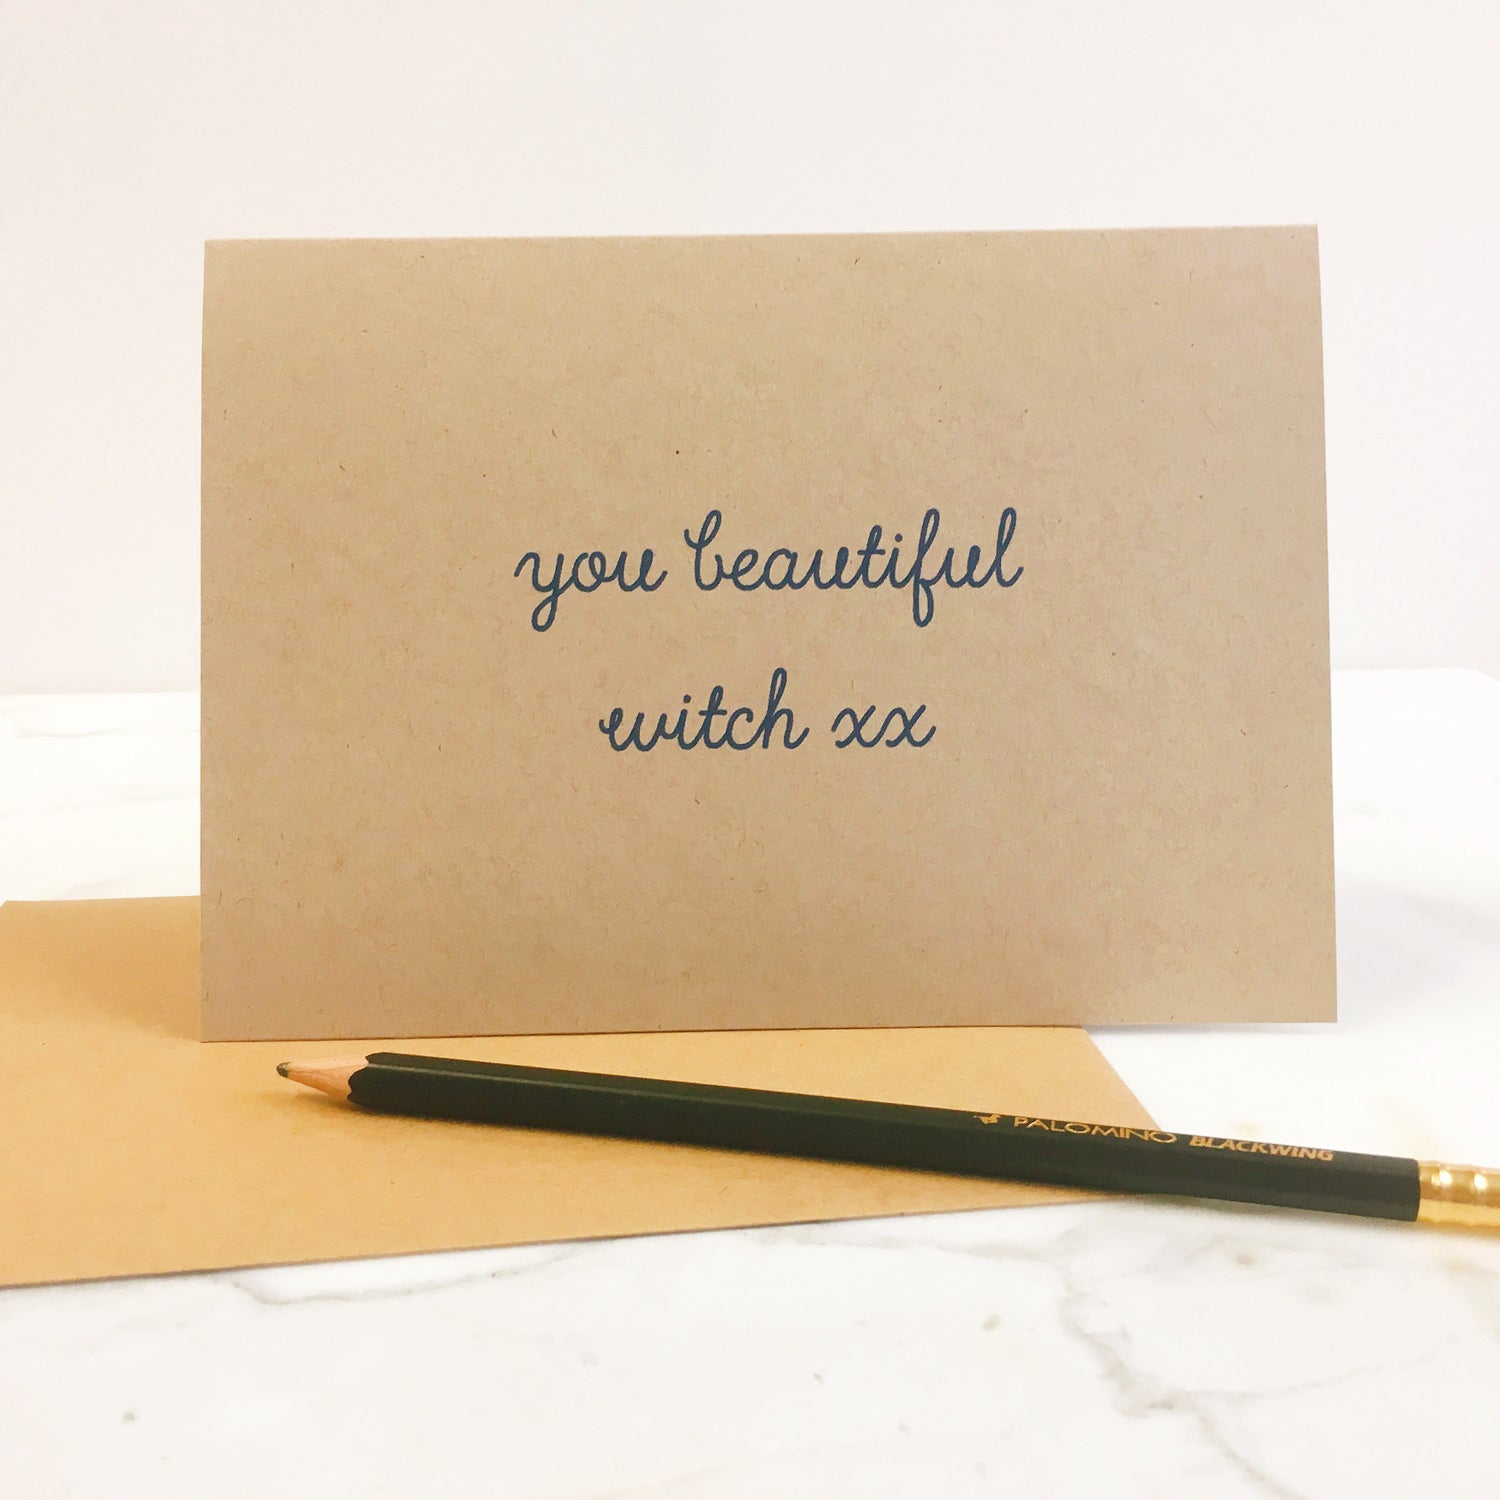 you beautiful
witch xx
PALOMINO BLACKWING